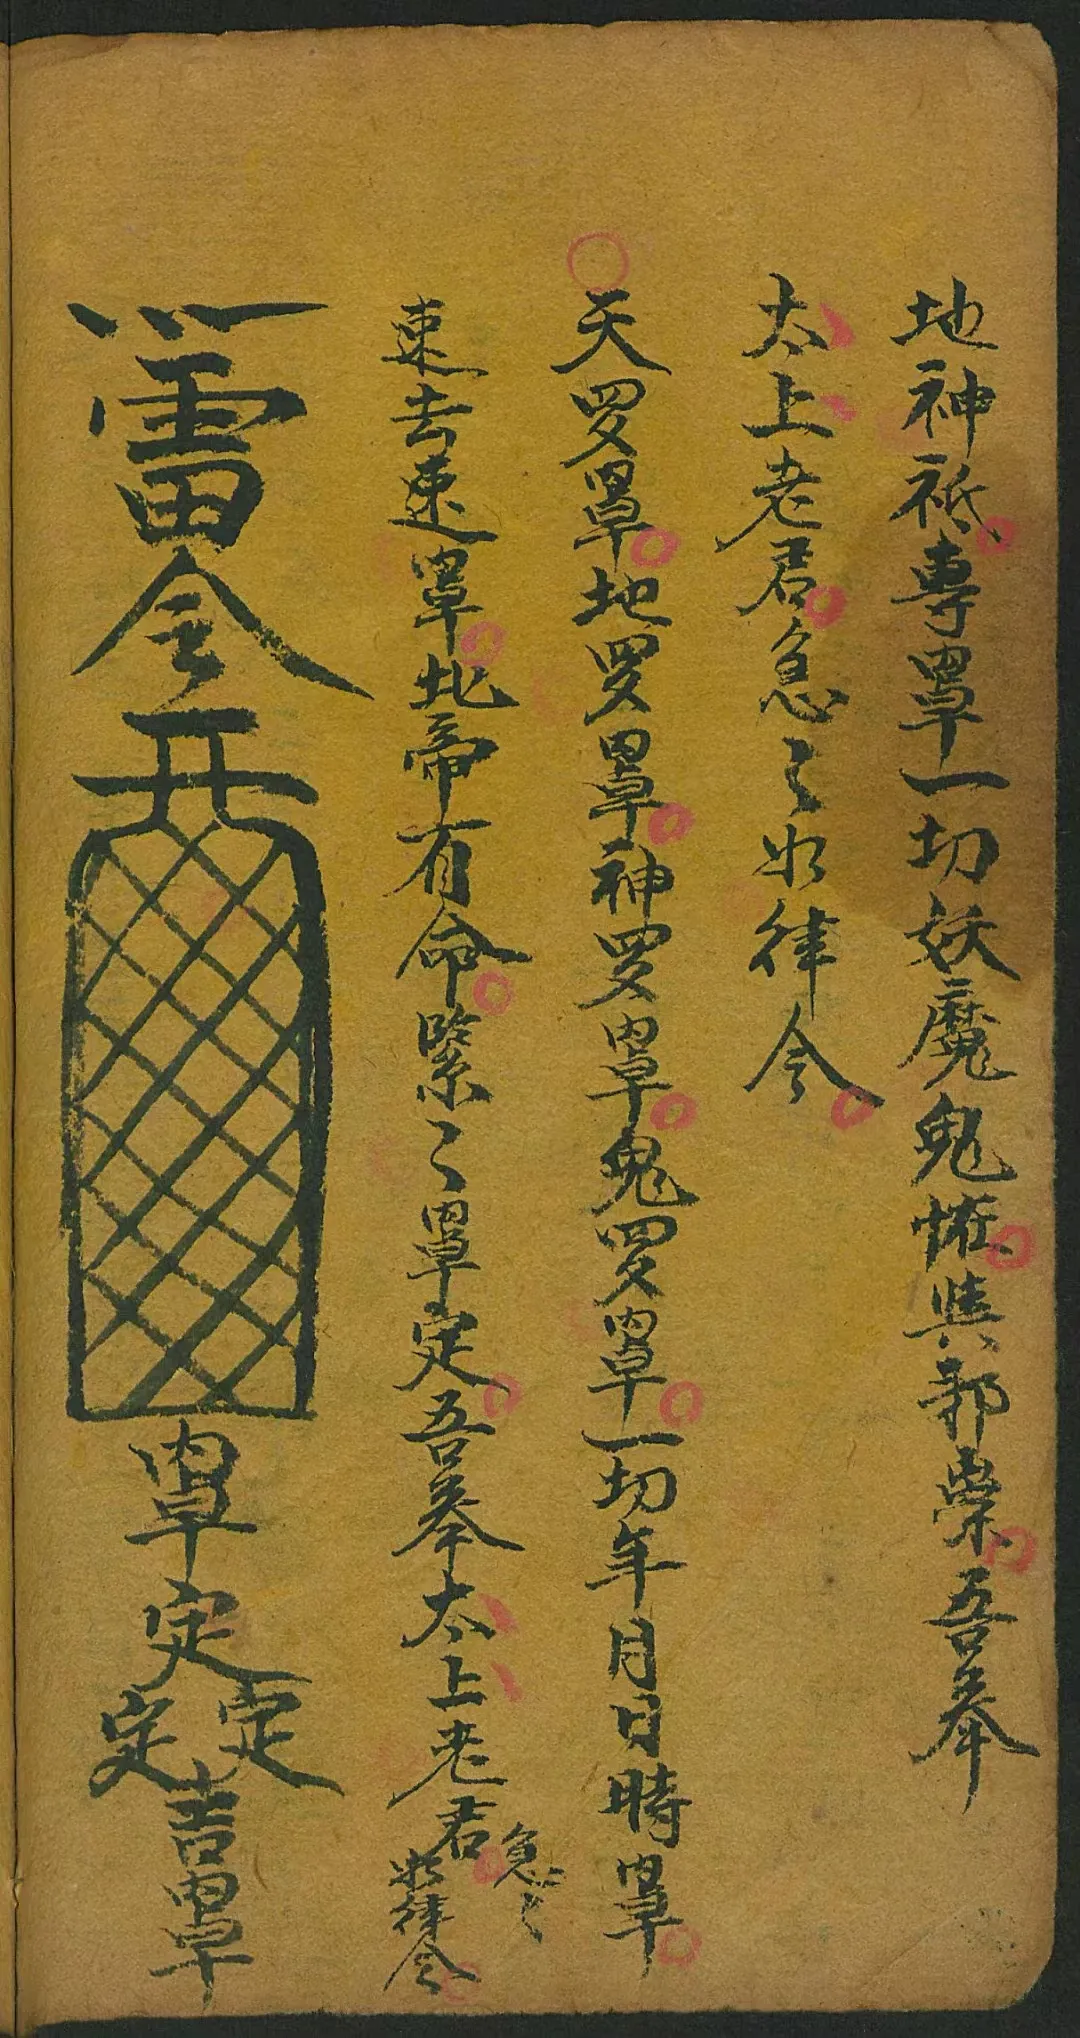 地神祇專罩一切妖魔鬼恠與邪祟吾奉
太上老君急〻如律令
天罗罩地罗罩神罗罩鬼罗罩一切年月日時罩
速去速罩北帝有命緊〻罩定吾奉太上老君急〻如律令
雷令
罩定定定吉罩